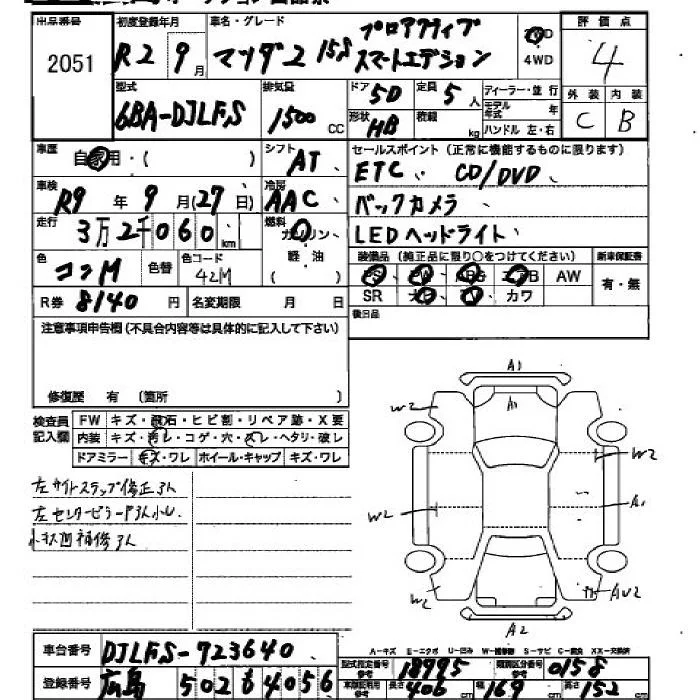 出品番号
2051
初度登録年月
R2 9月
車名・グレード
マツダ2 15S プロアクティブ スマートエディション
4WD
評価点
4
型式
6BA-DJLFS
排気量
1500 CC
ドア 5D
定員 5人
形状 HB
積載 kg
ディーラー・並行
モデル年式 年
ハンドル 左・右
外装 内装
C B
車歴
自家用・( )
シフト
AT
セールスポイント (正常に機能するものに限ります)
ETC、 CD/DVD、
バックカメラ
LEDヘッドライト、
車検
R9年9月(27日)
冷房
AAC
走行
3万2千060km
燃料
ガソリン・
軽油
( )
色
コンM
色替
色コード
42M
装備品 (純正品に限り○をつけてください)
新車保証書
PS PW ABS エアB AW
SR ナビ TV カワ
有・無
R券 8140円
名変期限 月 日
後日品
注意事項申告欄(不具合内容等は具体的に記入して下さい)
修復歴 有 〔箇所 〕
検査員記入欄
FW キズ・飛石・ヒビ割・リペア跡・X要
内装 キズ・汚レ・コゲ・穴・スレ・ヘタリ・破レ
ドアミラー キズ・ワレ ホイール・キャップ キズ・ワレ
左サイドステップ修正アト
左センターピラーPアト小U
小キズ凹補修アト
A1
A1
W2
W2
W2
A1
W2
AU2
A2
A-キズ E-エクボ U-凹み W-補修跡 S-サビ C-腐食 XX-交換済
車台番号 DJLFS-723640
登録番号 広島 502 も 4056
型式指定番号 18995
類別区分番号 0158
長さ 406 cm 幅 169 cm 高さ 152 cm